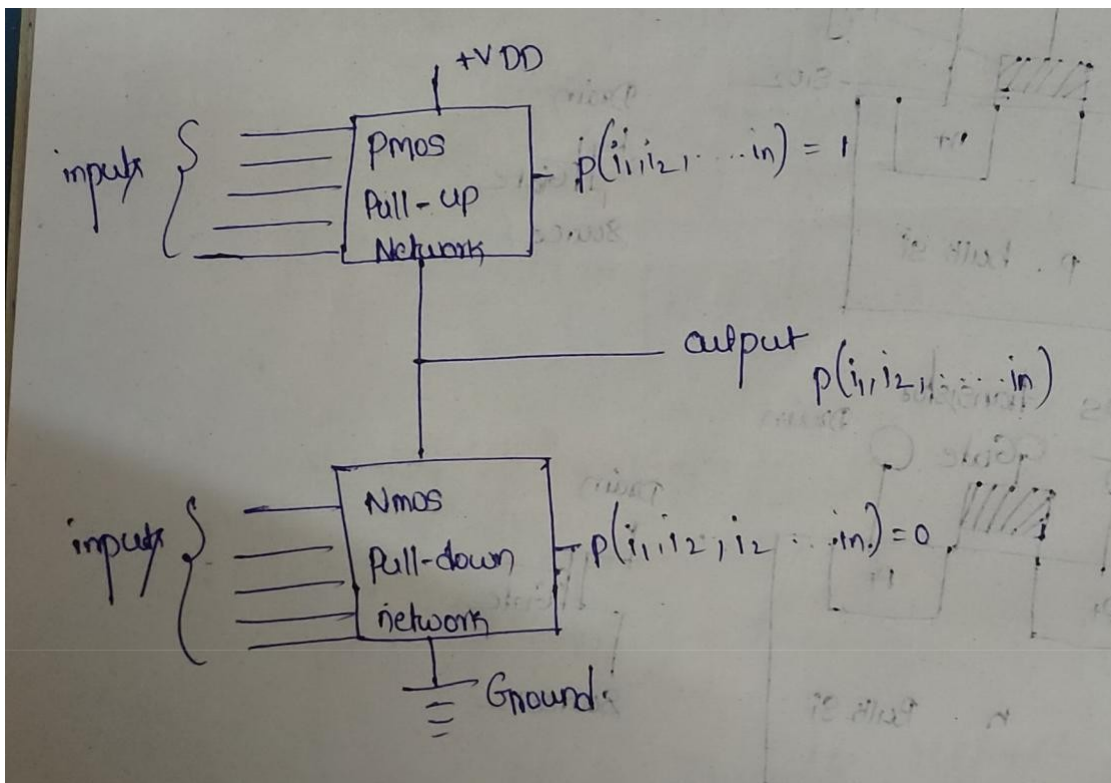 +VDD
inputs
Pmos
Pull-up
Network
p(i1,i2, .... in) = 1
output
p(i1,i2,.....in)
inputs
Nmos
Pull-down
network
p(i1,i2,i2 ...in.)=0
Ground.